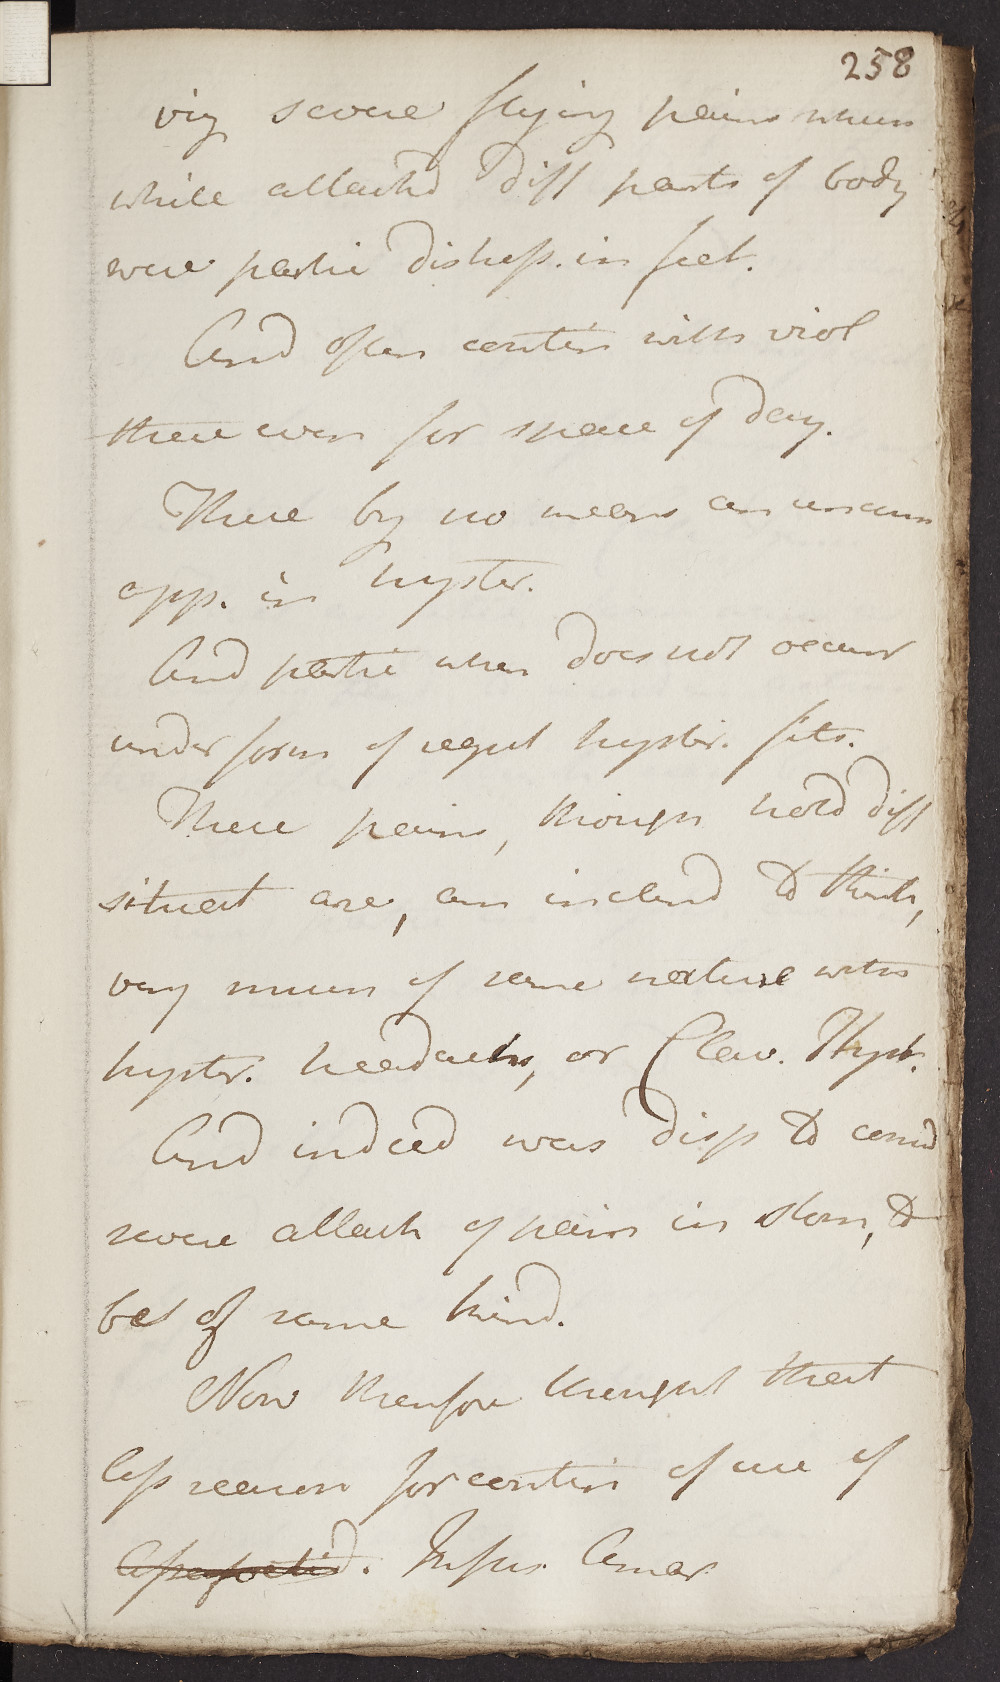 258
viz severe flying pains whic
while attackd diff parts of body
were partic distress. in feet.
And often contin with viol
these even for space of day.
These by no means an uncom
app. in hyster.
And partic when does not occur
under form of regul hyster. fits.
These pains, though hold diff
situat are, am inclend to think,
very much of same nature with
hyster. headachs, or Clav. Hyst.
And indeed was disp to consid
severe attack of pain in stom, to
be of same kind.
Now therefore thought that
less reason for contin of use of
Assafoetid. Infus. Amar